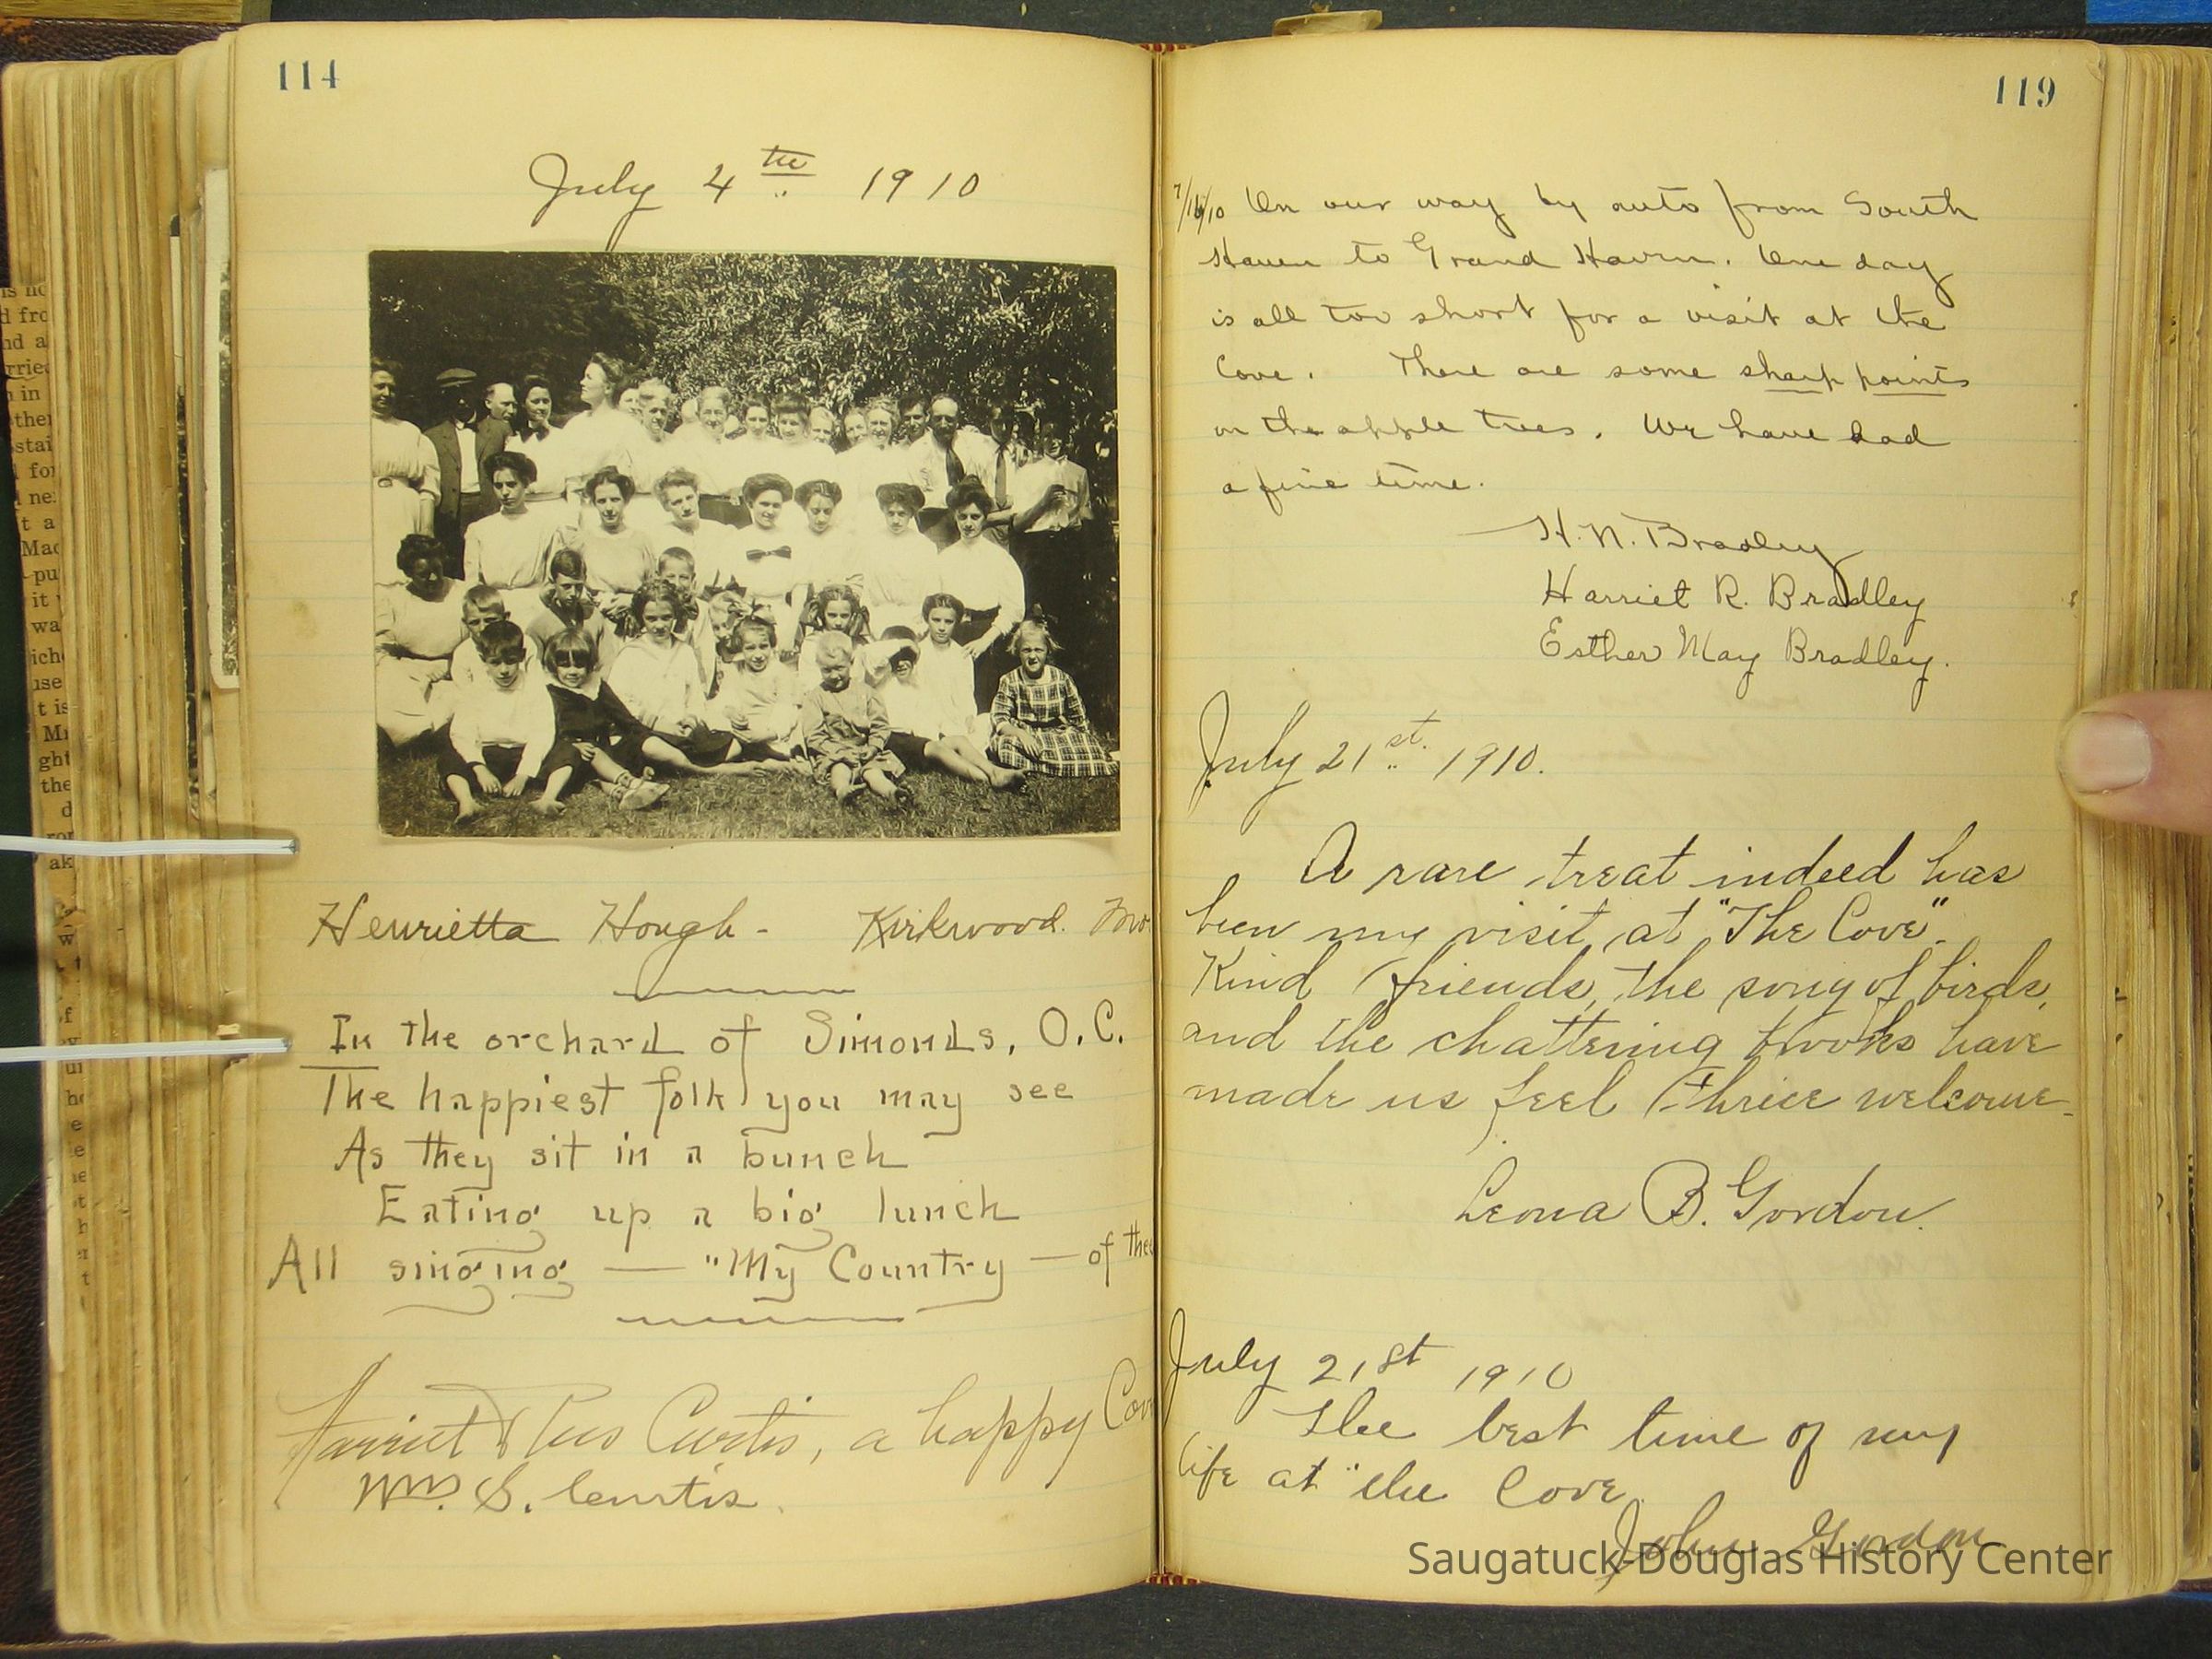 114
July 4th 1910
Henrietta Hough - Kirkwood. Mo.
In the orchard of Simonds, O.C.
The happiest folk you may see
As they sit in a bunch
Eating up a big lunch
All singing — "My Country — of thee
Harriet Curtis, a happy Cov
Wm. S. Curtis.
119
7/16/10 On our way by auto from South
Haven to Grand Haven. One day
is all too short for a visit at the
Cove. There are some sharp points
on the apple trees. We have had
a fine time.
H. N. Bradley
Harriet R. Bradley
Esther May Bradley.
July 21st. 1910.
A rare treat indeed has
been my visit at "The Cove".
Kind friends, the song of birds,
and the chattering brooks have
made us feel thrice welcome.
Leona B. Gordon.
July 21st 1910
The best time of my
life at "the Cove
John Gordon
Saugatuck-Douglas History Center